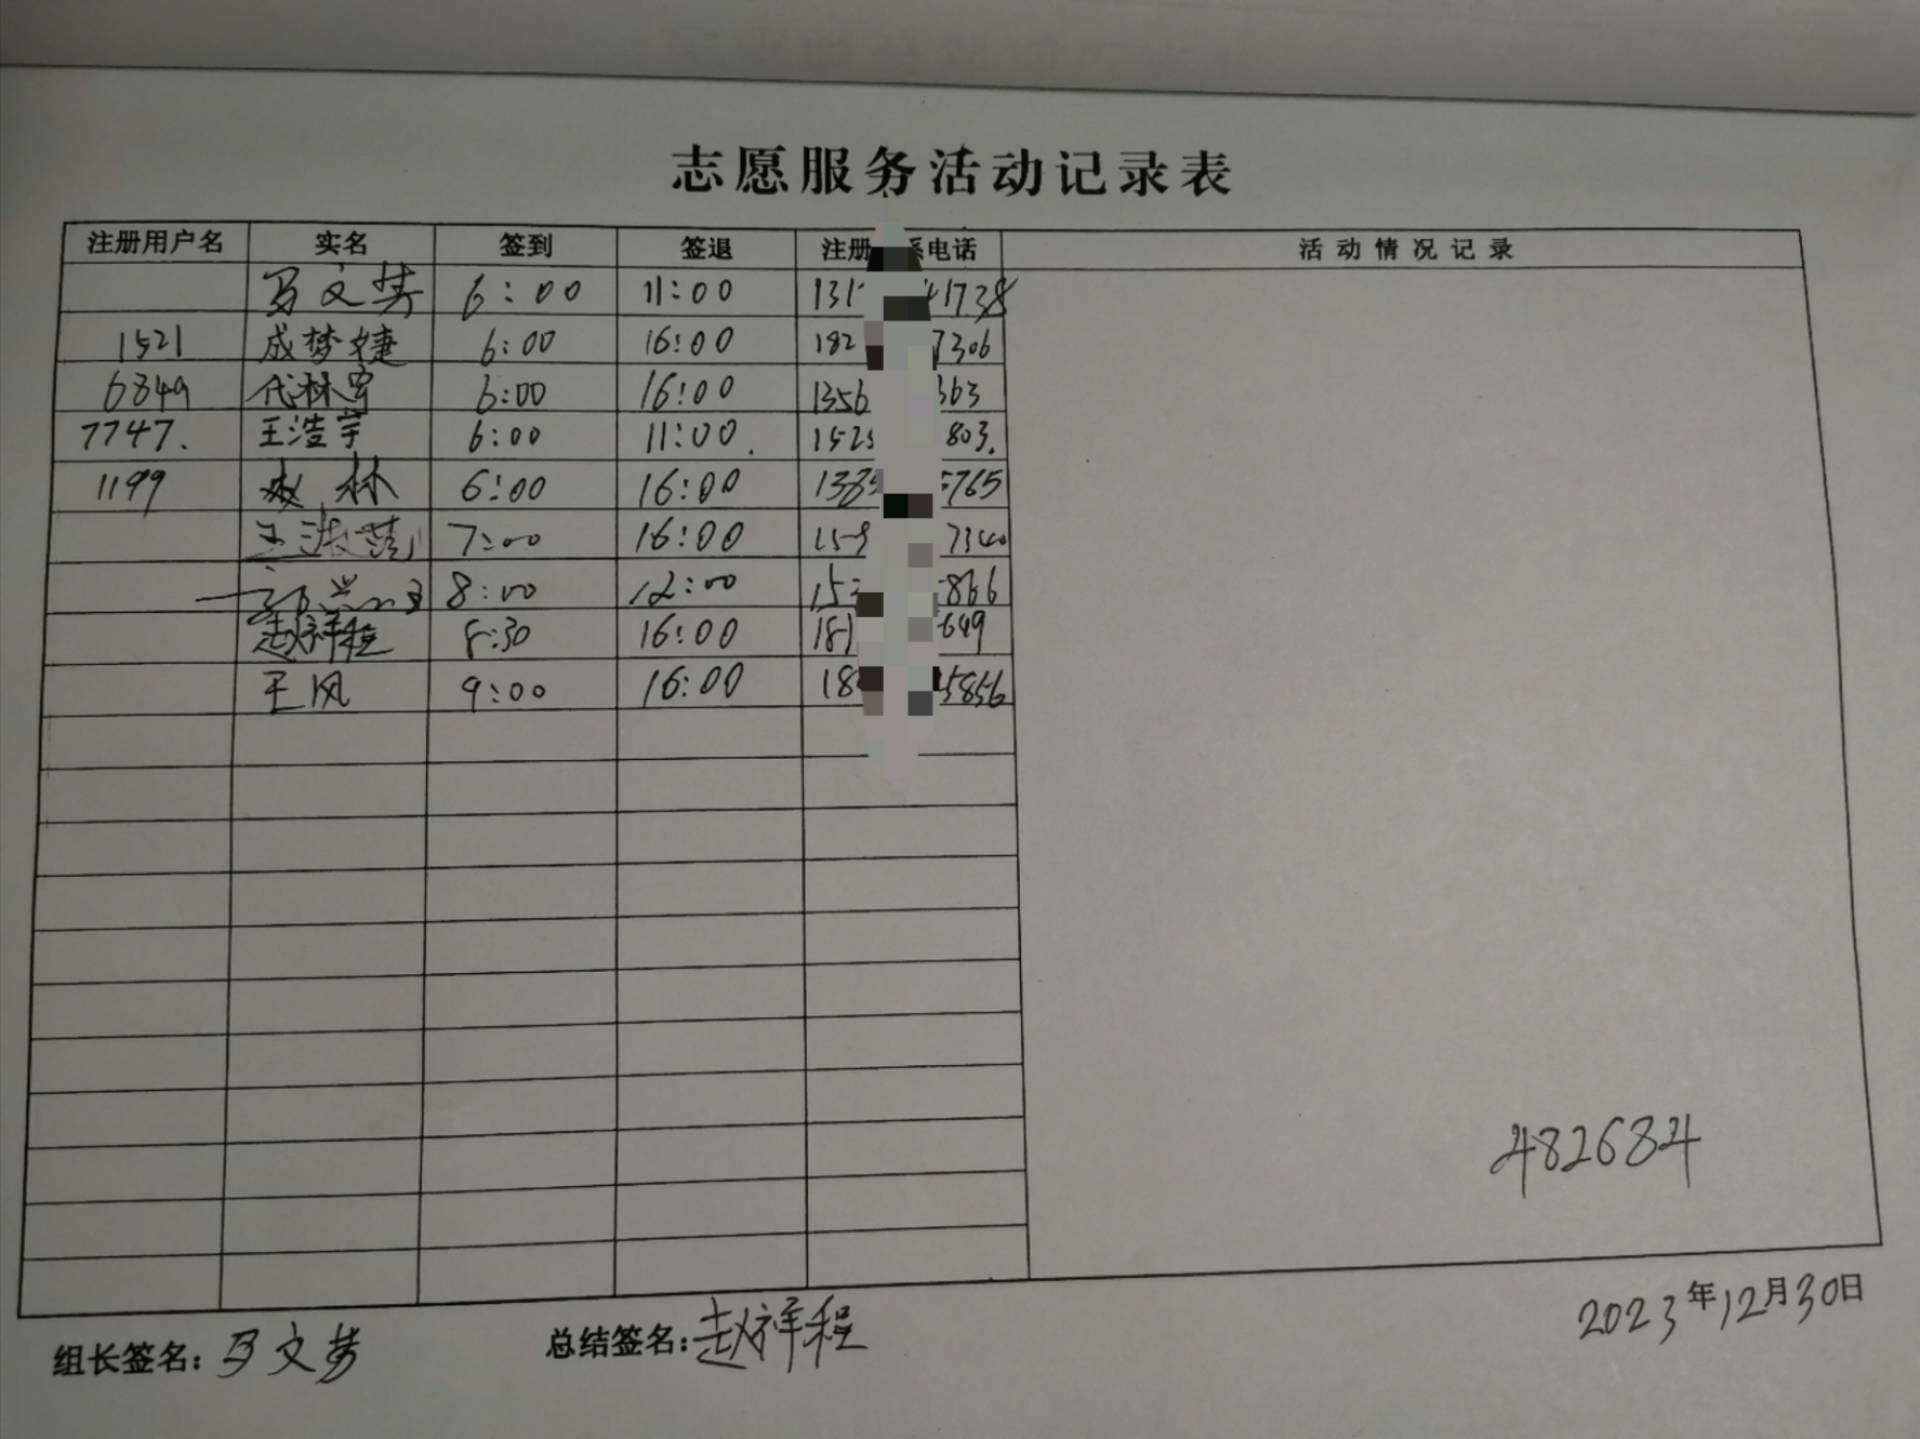 志愿服务活动记录表
注册用户名 实名 签到 签退 注册 系电话 活动情况记录
马文芳 6:00 11:00 131 41738
1521 成梦婕 6:00 16:00 182 7306
6849 代林宇 6:00 16:00 1356 363
7747. 王浩宇 6:00 11:00. 1525 803.
1199 林 6:00 16:00 1385 5765
王 7:00 16:00 159 7340
8:00 12:00 15 866
赵祥程 8:30 16:00 181 649
王风 9:00 16:00 18 5856
482684
2023年12月30日
组长签名: 马文芳 总结签名: 赵祥程